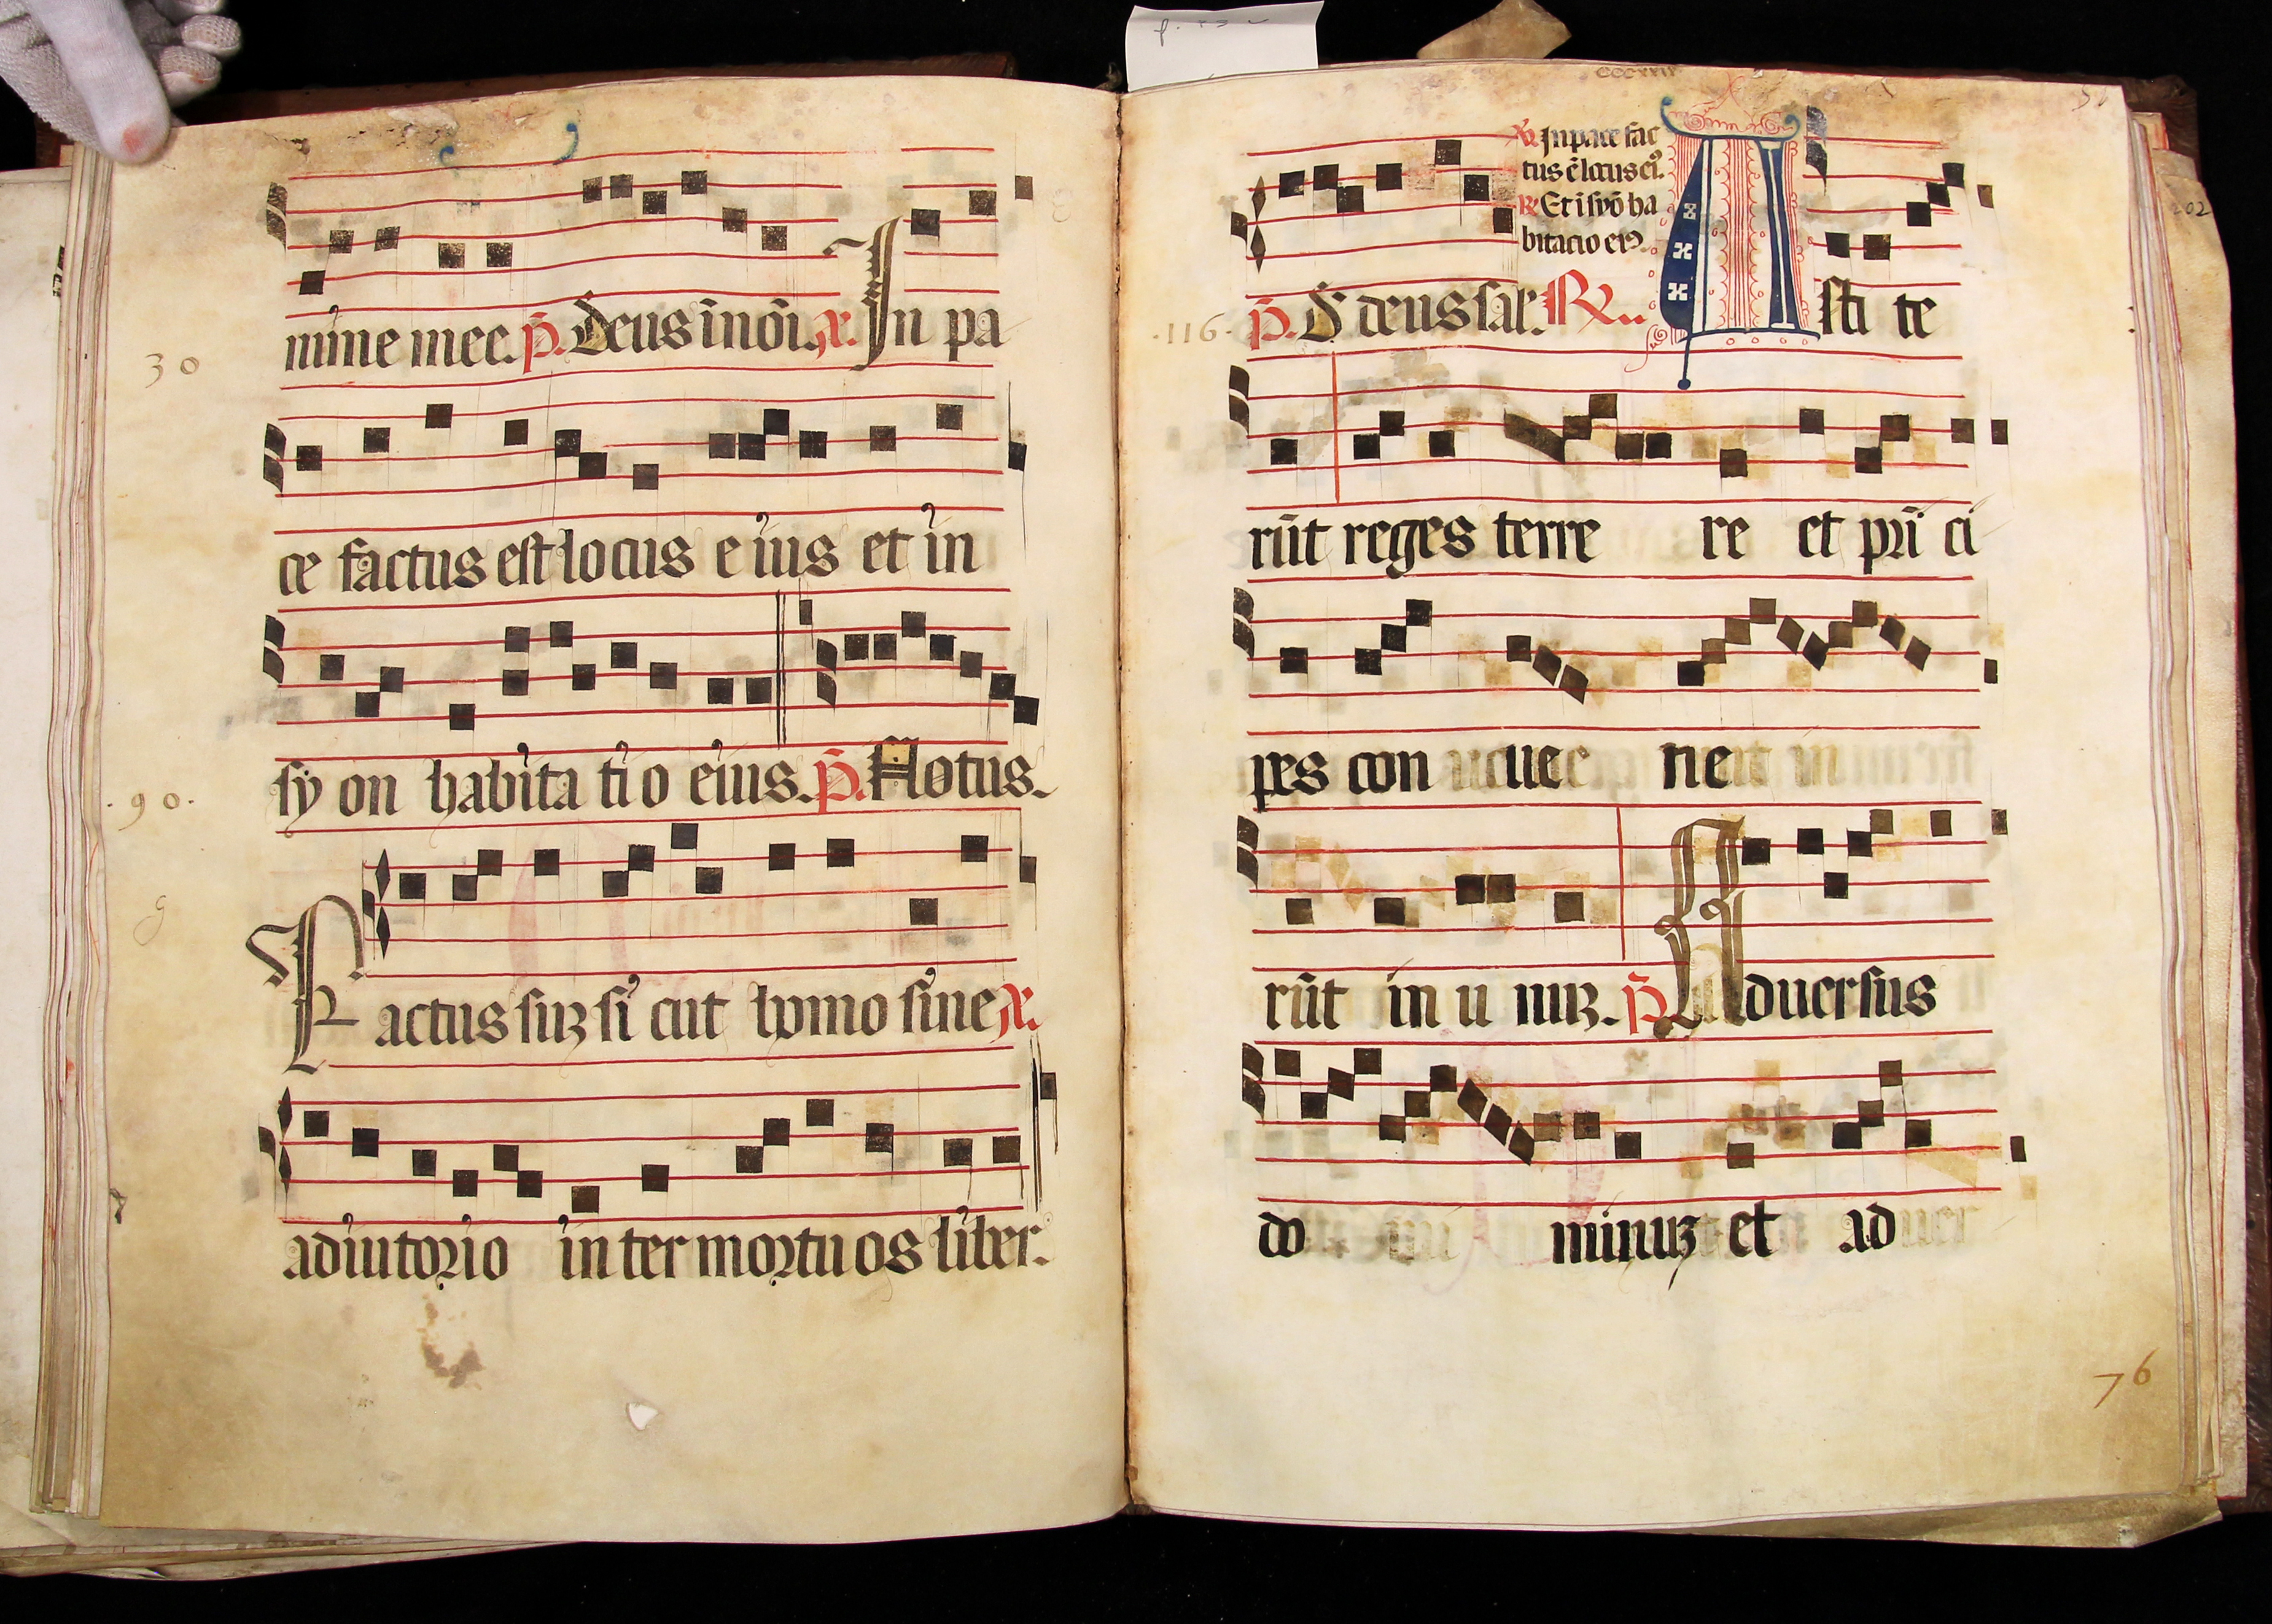 nime mee. p̄. Deus ī nōi. x. In pa
30
ce factus est locus e ius et in
sy on habita ti o eius. p̄. Notus.
.90.
Factus suʒ si cut homo sine x.
adiutorio in ter mortu os liber.
℟ In pace fac
tus ē locus ei9.
℟ Et ī syō ha
bitacio ei9.
.116. p̄. D deus sal. ℟. Asti te
rūt reges terre re et prī ci
pes con ue ne
rūt in u nuʒ. p̄. Aduersus
do minuʒ et ad uer
76